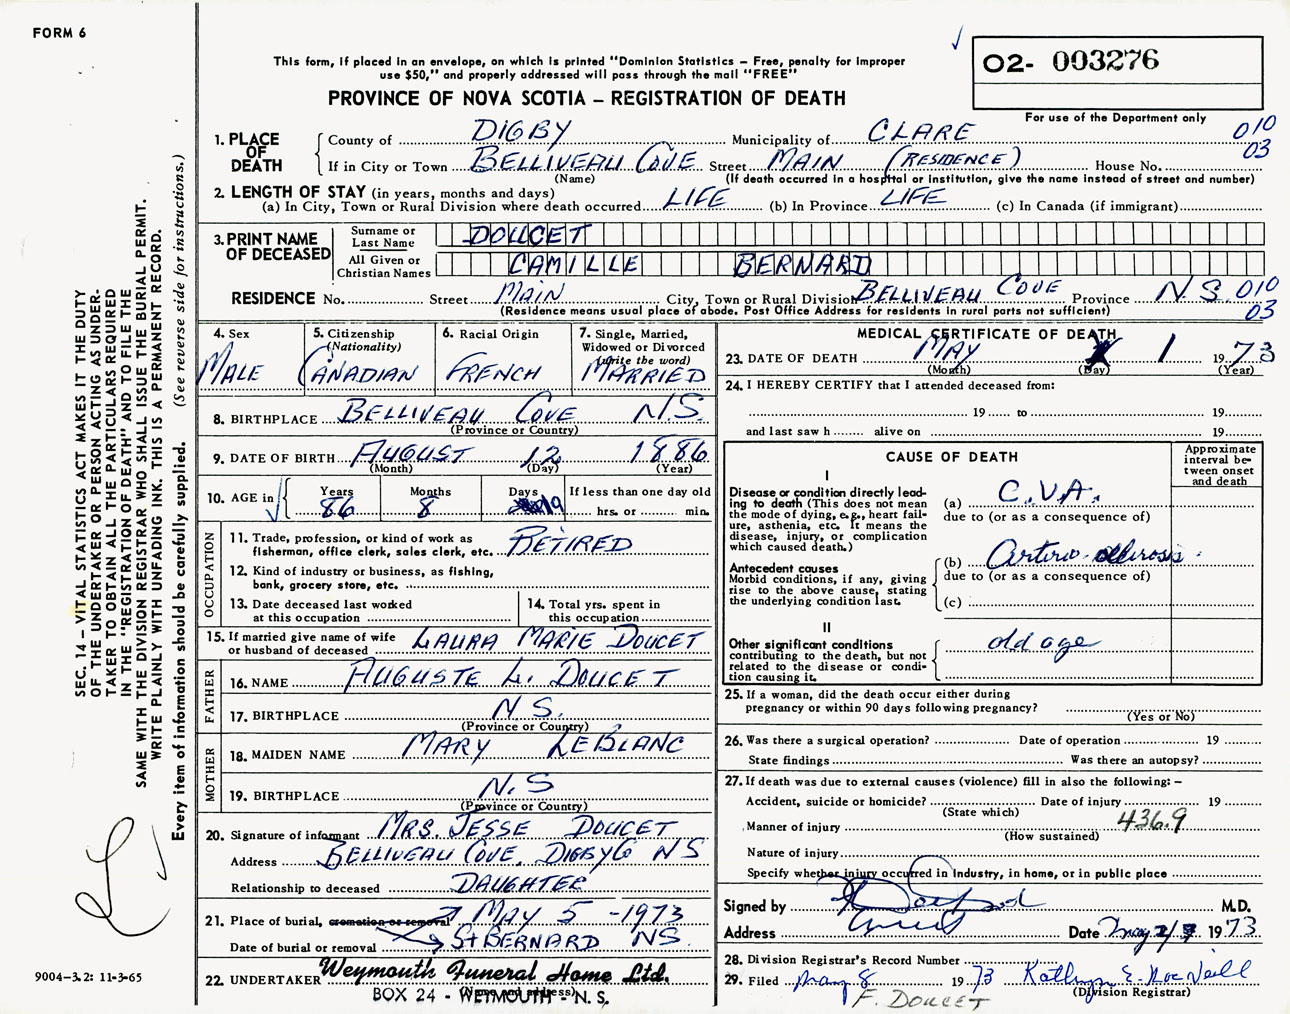 FORM 6
This form, if placed in an envelope, on which is printed "Dominion Statistics – Free, penalty for improper
use $50," and properly addressed will pass through the mail "FREE"
PROVINCE OF NOVA SCOTIA – REGISTRATION OF DEATH
O2- 003276
For use of the Department only
010
03
1. PLACE OF DEATH
County of DIGBY Municipality of CLARE
If in City or Town BELLIVEAU COVE Street MAIN (RESIDENCE) House No.
(Name) (If death occurred in a hospital or institution, give the name instead of street and number)
2. LENGTH OF STAY (in years, months and days)
(a) In City, Town or Rural Division where death occurred LIFE (b) In Province LIFE (c) In Canada (if immigrant)
3. PRINT NAME OF DECEASED
Surname or Last Name DOUCET
All Given or Christian Names CAMILLE BERNARD
RESIDENCE No. Street MAIN City, Town or Rural Division BELLIVEAU COVE Province N.S. 010
(Residence means usual place of abode. Post Office Address for residents in rural parts not sufficient) 03
4. Sex
MALE
5. Citizenship
(Nationality)
CANADIAN
6. Racial Origin
FRENCH
7. Single, Married,
Widowed or Divorced
(write the word)
MARRIED
8. BIRTHPLACE BELLIVEAU COVE N.S.
(Province or Country)
9. DATE OF BIRTH AUGUST 12 1886
(Month) (Day) (Year)
10. AGE in
Years Months Days If less than one day old
86 8 19 hrs. or min.
OCCUPATION
11. Trade, profession, or kind of work as
fisherman, office clerk, sales clerk, etc. RETIRED
12. Kind of industry or business, as fishing,
bank, grocery store, etc.
13. Date deceased last worked
at this occupation
14. Total yrs. spent in
this occupation
15. If married give name of wife
or husband of deceased LAURA MARIE DOUCET
FATHER
16. NAME AUGUSTE L. DOUCET
17. BIRTHPLACE N.S.
(Province or Country)
MOTHER
18. MAIDEN NAME MARY LEBLANC
19. BIRTHPLACE N.S
(Province or Country)
20. Signature of informant MRS. JESSE DOUCET
Address BELLIVEAU COVE, DIGBY CO NS
Relationship to deceased DAUGHTER
21. Place of burial, cremation or removal MAY 5 -1973
Date of burial or removal St BERNARD NS.
22. UNDERTAKER Weymouth Funeral Home Ltd.
(Name and address)
BOX 24 - WEYMOUTH - N. S.
MEDICAL CERTIFICATE OF DEATH
23. DATE OF DEATH MAY 1 1973
(Month) (Day) (Year)
24. I HEREBY CERTIFY that I attended deceased from:
19 to 19
and last saw h alive on 19
CAUSE OF DEATH
Approximate
interval be-
tween onset
and death
I
Disease or condition directly lead-
ing to death (This does not mean
the mode of dying, e.g., heart fail-
ure, asthenia, etc. It means the
disease, injury, or complication
which caused death.)
(a) C.V.A.
due to (or as a consequence of)
Antecedent causes
Morbid conditions, if any, giving
rise to the above cause, stating
the underlying condition last.
(b) Arterio
due to (or as a consequence of)
(c)
II
Other significant conditions
contributing to the death, but not
related to the disease or condi-
tion causing it.
old age
25. If a woman, did the death occur either during
pregnancy or within 90 days following pregnancy?
(Yes or No)
26. Was there a surgical operation? Date of operation 19
State findings Was there an autopsy?
27. If death was due to external causes (violence) fill in also the following: –
Accident, suicide or homicide? Date of injury 19
(State which)
Manner of injury 436.9
(How sustained)
Nature of injury
Specify whether injury occurred in industry, in home, or in public place
Signed by M.D.
Address Date May 1973
28. Division Registrar's Record Number
29. Filed May 8 1973 Kathryn E. MacNeill
(Division Registrar)
F. DOUCET
SEC. 14 – VITAL STATISTICS ACT MAKES IT THE DUTY
OF THE UNDERTAKER OR PERSON ACTING AS UNDER-
TAKER TO OBTAIN ALL THE PARTICULARS REQUIRED
IN THE "REGISTRATION OF DEATH" AND TO FILE THE
SAME WITH THE DIVISION REGISTRAR WHO SHALL ISSUE THE BURIAL PERMIT.
WRITE PLAINLY WITH UNFADING INK. THIS IS A PERMANENT RECORD.
Every item of information should be carefully supplied. (See reverse side for instructions.)
9004-3.2: 11-3-65